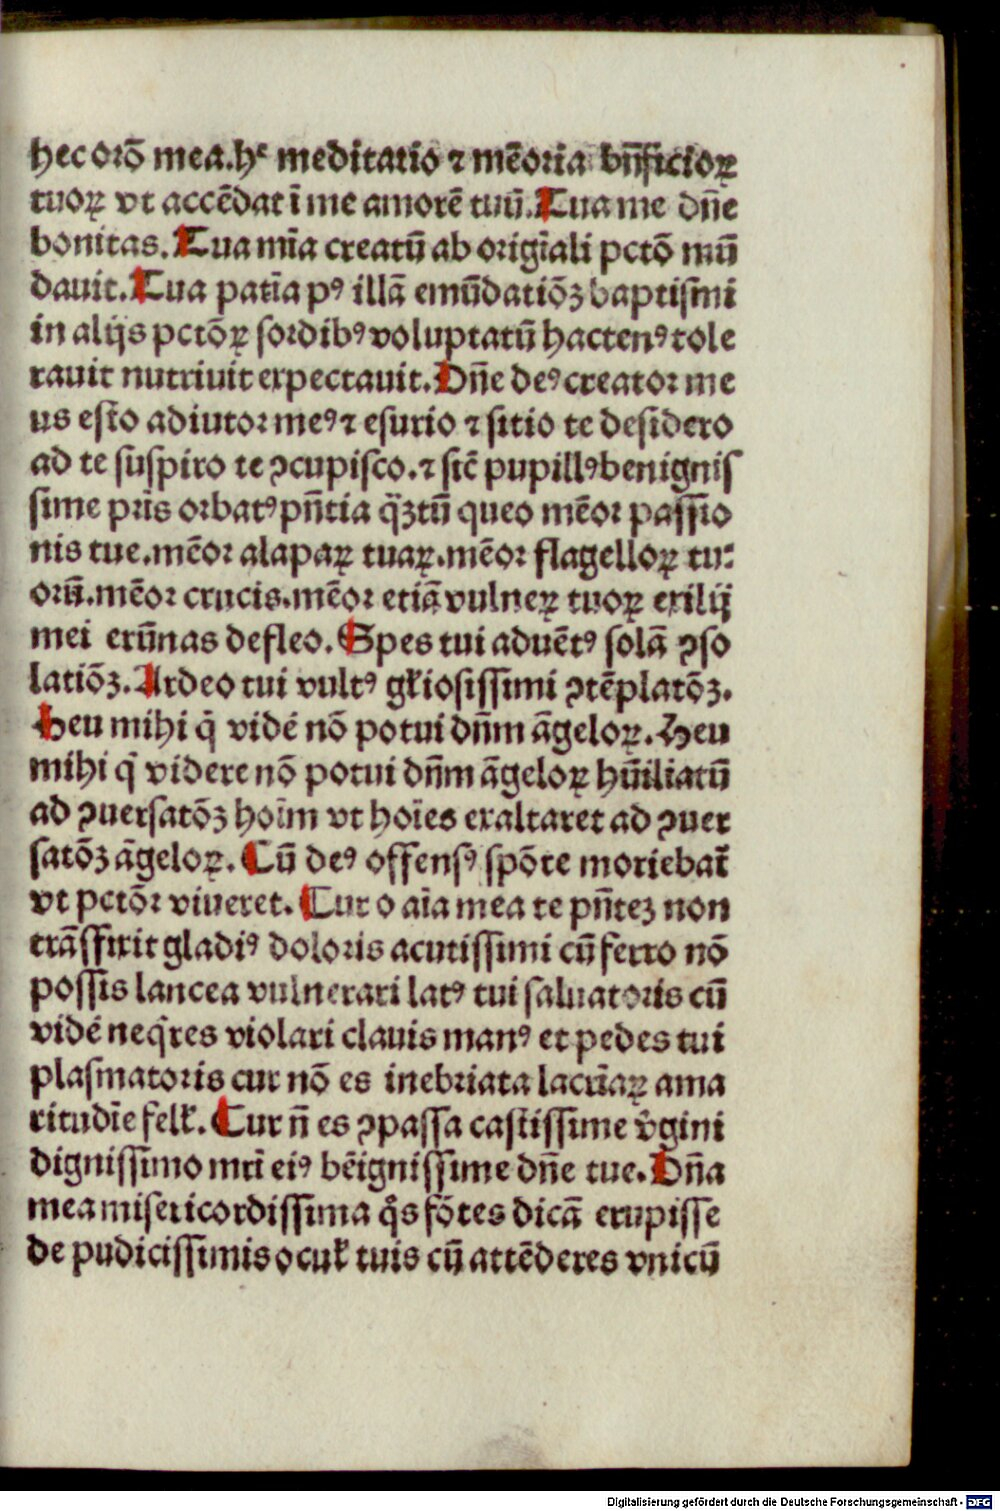 hec orō mea.hᵉ meditatio ⁊ mēoria bn̄ficioꝝ
tuoꝝ vt accēdat ī me amorē tuū.Tua me dn̄e
bonitas.Tua mīa creatū ab origīali pctō mū
dauit.Tua patīa pꝰ illā emūdatiōꝫ baptismi
in alijs pctōꝝ sordibꝰ voluptatū hactenꝰ tole
rauit nutriuit expectauit.Dn̄e deꝰ creator me
us esto adiutor meꝰ ⁊ esurio ⁊ sitio te desidero
ad te suspiro te ꝯcupisco.⁊ sic̄ pupillꝰ benignis
sime pr̄is orbatꝰ pn̄tia q̈ꝫtū queo mēor passio
nis tue.mēor alapaꝝ tuaꝝ.mēor flagelloꝝ tu⸗
orū.mēor crucis.mēor etiā vulneꝝ tuoꝝ exilij
mei erūnas defleo.Spes tui aduētꝰ solā ꝯso
latiōꝫ.Ardeo tui vultꝰ gl̄iosissimi ꝯtēplatōꝫ.
Heu mihi q̄ vidē nō potui dn̄m āgeloꝝ.Heu
mihi q̄ videre nō potui dn̄m āgeloꝝ hūiliatū
ad ꝯuersatōꝫ hoīm vt hoīes exaltaret ad ꝯuer
satōꝫ āgeloꝝ.Cū deꝰ offensꝰ spōte moriebat̄
vt pctōr viueret.Cur o aīa mea te pn̄teꝫ non
trāsfixit gladiꝰ doloris acutissimi cū ferro nō
possis lancea vulnerari latꝰ tui saluatoris cū
vidē neq̄res violari clauis manꝰ et pedes tui
plasmatoris cur nō es inebriata lacrīaꝝ ama
ritudīe fell̄.Cur n̄ es ꝯpassa castissime v̄gini
dignissimo mr̄i eiꝰ bēignissime dn̄e tue.Dn̄a
mea misericordissima q̊s fōtes dicā erupisse
de pudicissimis ocul̄ tuis cū attēderes vnicū
Digitalisierung gefördert durch die Deutsche Forschungsgemeinschaft - DFG